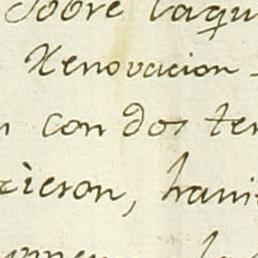 Sobre laqu
Renovacion
n con dos ter
icieron, hani